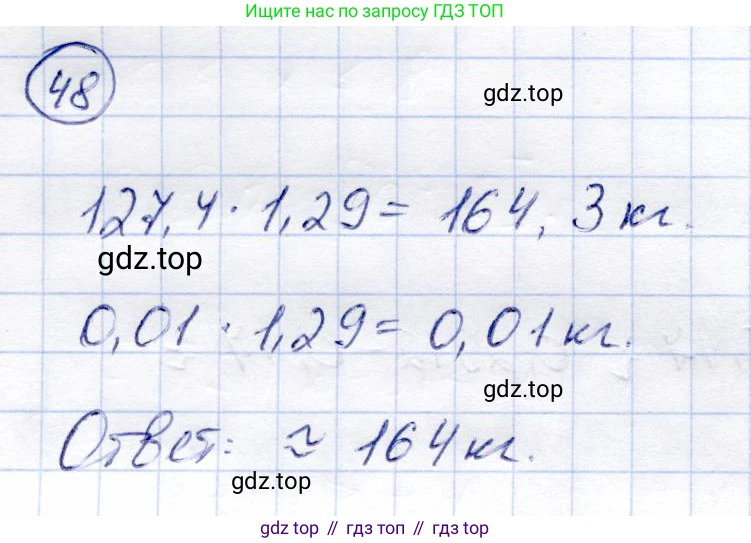 Ищите нас по запросу ГДЗ ТОП
48
gdz.top
127,4 · 1,29 = 164,3 кг.
gdz.top
0,01 · 1,29 = 0,01 кг.
gdz.top
Ответ: ≈ 164 кг.
gdz.top
gdz top // гдз топ // gdz top